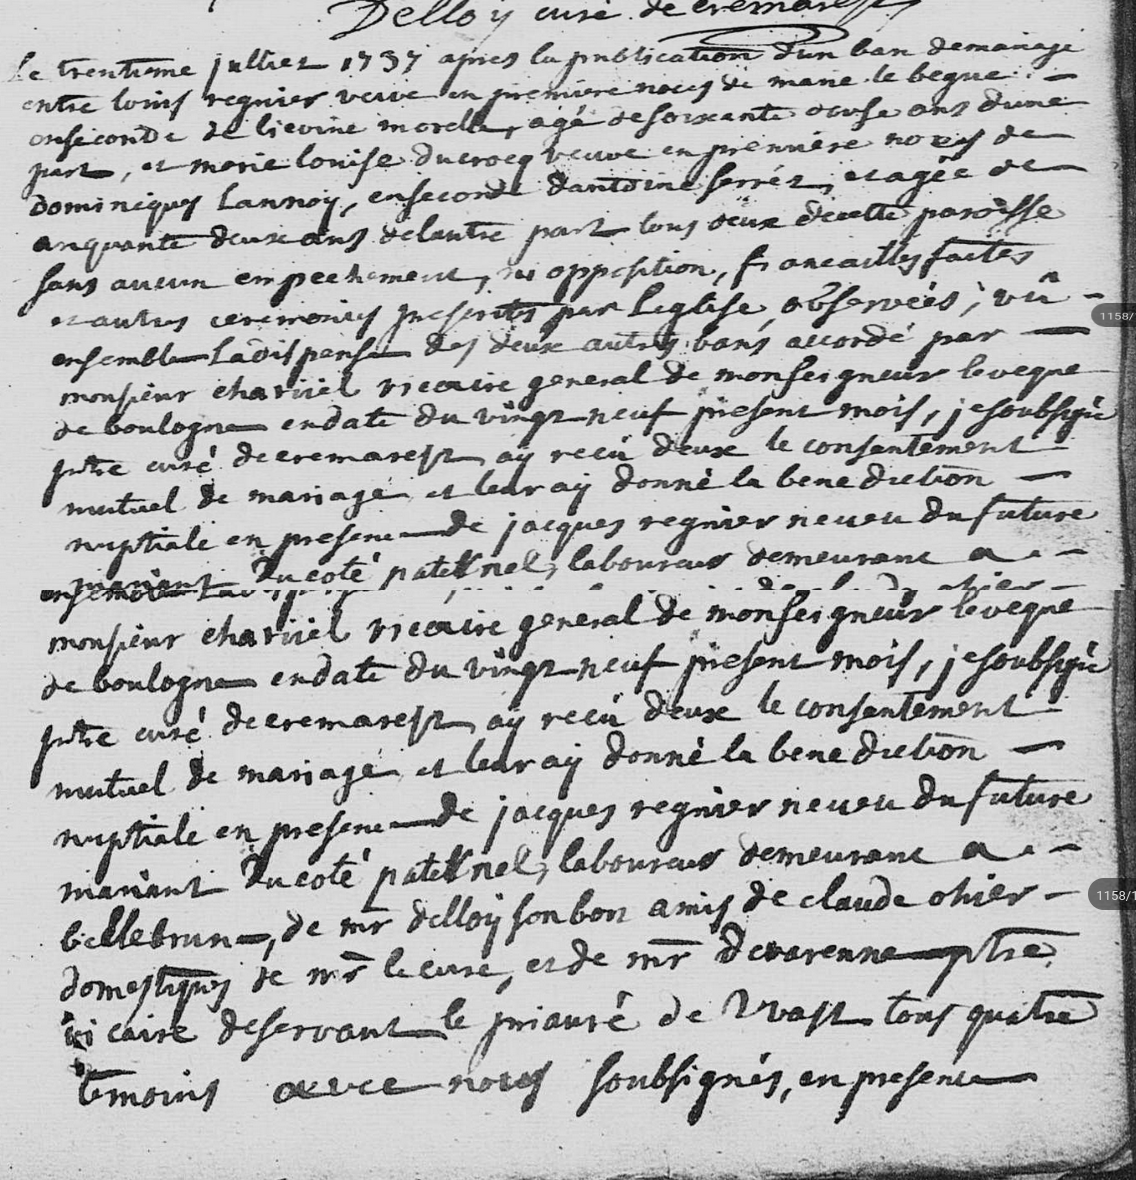 Delloy curé de cremarest
le trentieme julliet 1737 apres la publication d'un ban de mariage
entre louis regnier veuve en premiere noces de marie le begue
en seconde de lievine morelle, agé de soixante ans d'une
part, et marie louise ducrocq veuve en premiere noces de
dominique Lannoy, en seconde d'antoine serrét, et agée de
cinquante deux ans de lautre part tous deux de cette paroisse
sans aucun empechement, ni opposition, fiancailles faites
et autres ceremonies prescrites par Leglise, observées, vû
ensemble La dispense des deux autres bans accordé par
monsieur charuel vicaire general de monseigneur leveque
de boulogne en date du vingt neuf present mois, je soubsigné
ptre curé de cremarest ay recu deux le consentement
mutuel de mariage et leur ay donné la benediction
nuptiale en presence de jacques regnier neveu du future
mariant du coté paternel, laboureur demeurant a
monsieur charuel vicaire general de monseigneur leveque
de boulogne en date du vingt neuf present mois, je soubsigné
ptre curé de cremarest ay recu deux le consentement
mutuel de mariage et leur ay donné la benediction
nuptiale en presence de jacques regnier neveu du future
mariant du coté paternel, laboureur demeurant a
bellebrune, de mr delloy son bon amis de claude ohier
domestiques de mr le curé, et de mr devarenne ptre
vicaire deservant le priauré de Wast tous quatre
temoins avec nous soubsignés, en presence
1158/
1158/1